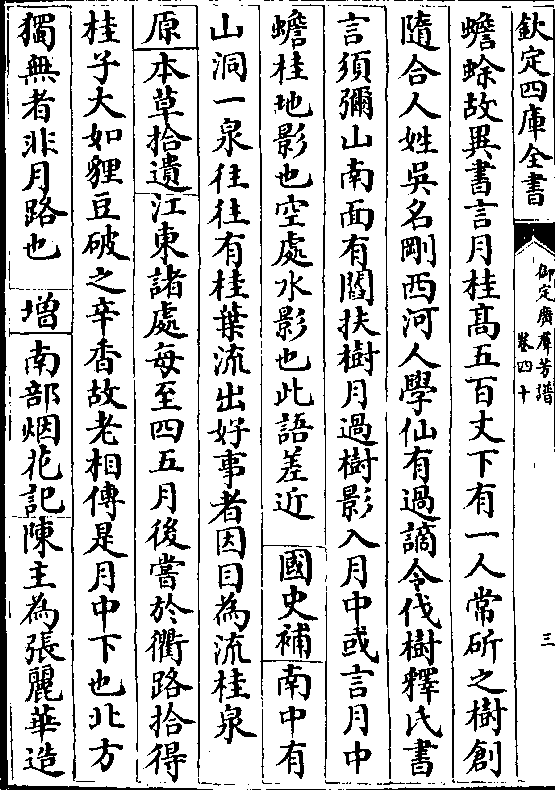 欽定四庫全書
御定廣羣芳譜
卷四十
三
蟾蜍故異書言月桂髙五百丈下有一人常斫之樹創
隨合人姓吳名剛西河人學仙有過謫令伐樹釋氏書
言須彌山南面有閻扶樹月過樹影入月中或言月中
蟾桂地影也空處水影也此語差近 國史補 南中有
山洞一泉往往有桂葉流出好事者因目為流桂泉
原 本草拾遺 江東諸處每至四五月後嘗於衢路拾得
桂子大如貍豆破之辛香故老相傳是月中下也北方
獨無者非月路也 増 南部烟花記 陳主為張麗華造